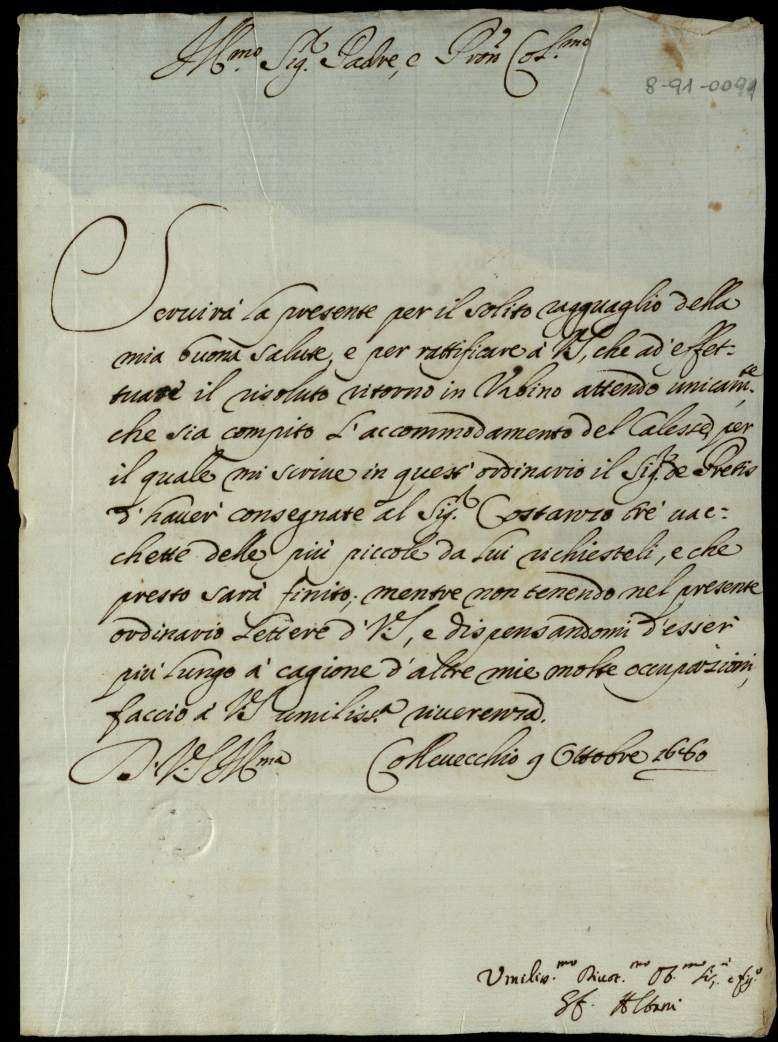 Ill.mo Sig.r Padre, e Pron Col.mo
8-91-0091
Seruirà la presente per il solito ragguaglio della
mia buona salute, e per rattificare à VS, che ad effet-
tuare il risoluto ritorno in Vrbino attendo unicam.te
che sia compito l'accommodamento del Calesse, per
il quale mi scriue in quest'ordinario il Sig.r de Pretis
d'hauer consegnate al Sig.r Costanzo trè uac-
chette delle più piccole da lui richiesteli, e che
presto sarà finito; mentre non tenendo nel presente
ordinario lettere di VS, e dispensandomi d'esser
più lungo à cagione d'altre mie molte occupazioni,
faccio à VS umiliss.a riuerenza.
Di VS Ill.ma Colleuecchio 9 Ottobre 1660
Vmiliss.mo Diuot.mo Ob.mo e figlo
Albani